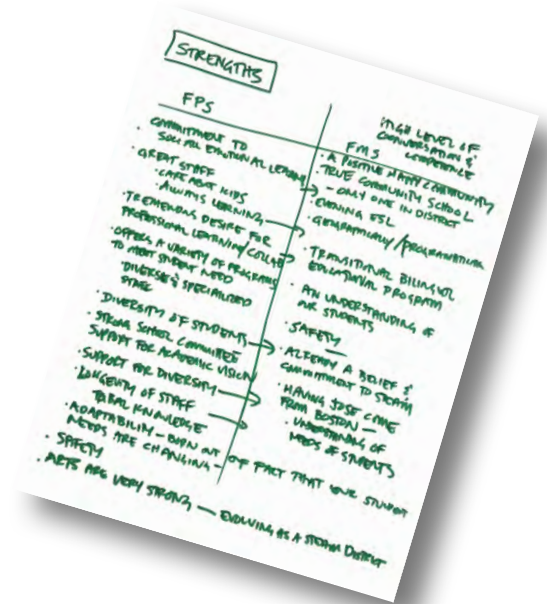 STRENGTHS
FPS
• COMMITMENT TO
SOCIAL EMOTIONAL LEARNING
• GREAT STAFF
• CARE ABOUT KIDS
• ALWAYS LEARNING
• TREMENDOUS DESIRE FOR
PROFESSIONAL LEARNING/COLLAB
• OFFERS A VARIETY OF PROGRAMS
TO MEET STUDENT NEED
• DIVERSE & SPECIALIZED
STAFF
• DIVERSITY OF STUDENTS
• STRONG SCHOOL COMMITTEE
SUPPORT FOR ACADEMIC VISION
• SUPPORT FOR DIVERSITY
• LONGEVITY OF STAFF
TRIBAL KNOWLEDGE
• ADAPTABILITY — BORN OUT OF FACT THAT OUR STUDENT
NEEDS ARE CHANGING -
• SAFETY
• ARTS ARE VERY STRONG — EVOLVING AS A STEAM DISTRICT
HIGH LEVEL OF
CONVERSATION &
COMPETENCE
FMS
• A POSITIVE HAPPY COMMUNITY
• TRUE COMMUNITY SCHOOL
- ONLY ONE IN DISTRICT
• EVENING ESL
• GEOGRAPHICALLY/PROGRAMMATICALLY
• TRANSITIONAL BILINGUAL
EDUCATIONAL PROGRAM
• AN UNDERSTANDING OF
OUR STUDENTS
• SAFETY
• ALREADY A BELIEF &
COMMITMENT TO STEAM
• HAVING JOSE COME
FROM BOSTON —
• UNDERSTANDING OF
NEEDS OF STUDENTS